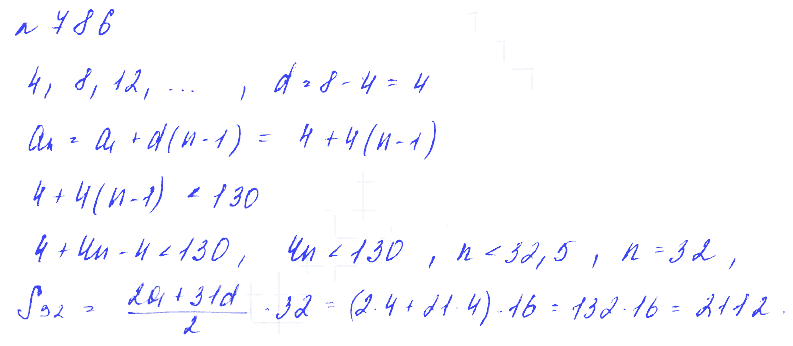 № 786
4, 8, 12, ... , d = 8 - 4 = 4
aₙ = a₁ + d(n-1) = 4 + 4(n-1)
4 + 4(n-1) < 130
4 + 4n - 4 < 130, 4n < 130, n < 32,5, n = 32,
S₃₂ = (2a₁ + 31d)/2 · 32 = (2·4 + 31·4)·16 = 132·16 = 2112.